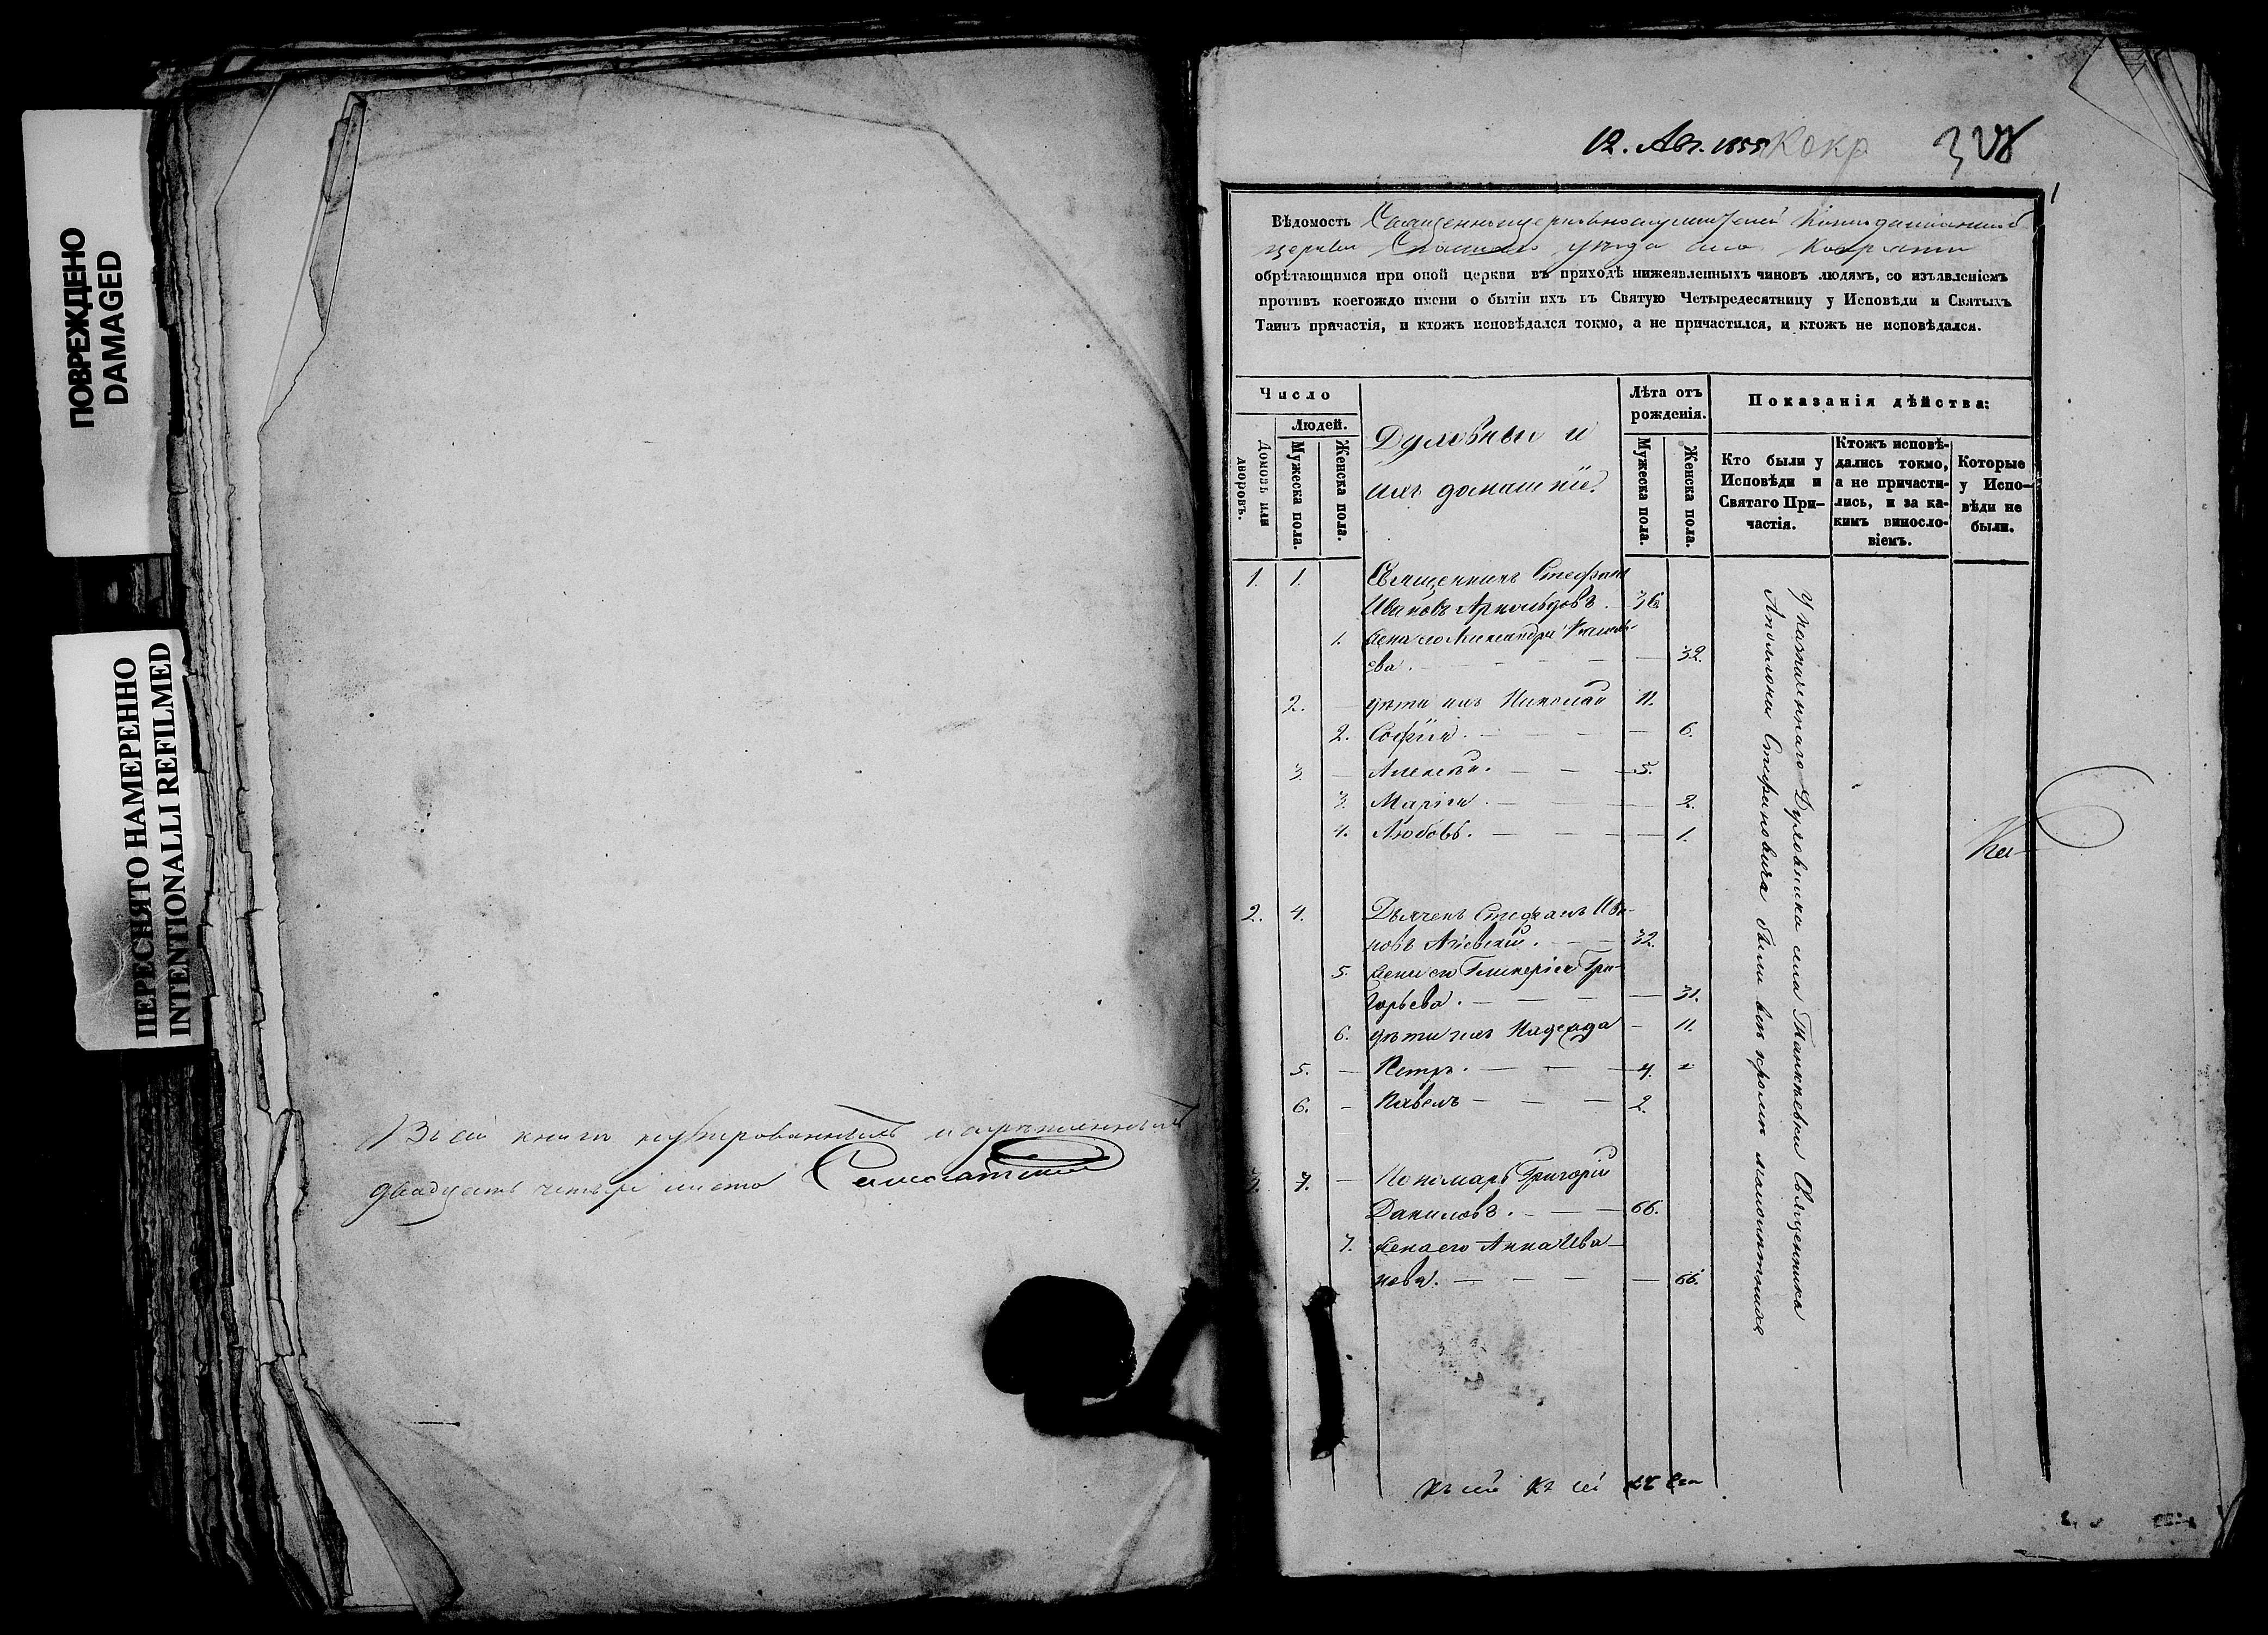 ПОВРЕЖДЕНО
DAMAGED
ПЕРЕСНЯТО НАМЕРЕННО
INTENTIONALLI REFILMED
Въ сей книгѣ
двадцать четыре листа
12. Авг. 1855 Кокр
1
Вѣдомость Священноцерковнослужителей
церкви Спаскаго уѣзда села Кокряти
обрѣтающимся при оной церкви въ приходѣ нижеявленныхъ чиновъ людямъ, со изъявленіемъ
противъ коегождо имени о бытіи ихъ въ Святую Четыредесятницу у Исповѣди и Святыхъ
Таинъ причастія, и ктожъ исповѣдался токмо, а не причастился, и ктожъ не исповѣдался.
Число
Людей.
Домовъ или дворовъ.
Мужеска пола.
Женска пола.
Духовные и
ихъ домашніе.
Лѣта отъ
рожденія.
Мужеска пола.
Женска пола.
Показанія дѣйства:
Кто были у
Исповѣди и
Святаго При-
частія.
Ктожъ исповѣ-
дались токмо,
а не причасти-
лись, и за ка-
кимъ винословіемъ.
Которые
у Испо-
вѣди не
были.
1. 1. Священникъ Стефанъ
Ивановъ Арнольдовъ. 36
1. Жена его Александра
ева. 32.
2. дѣти ихъ Николай 11.
2. Софія. 6.
3. Алексѣй. 5.
3. Марія. 2.
4. Любовь. 1.
2. 4. Дьячекъ Стефанъ Ива-
новъ 32.
5. Жена его Гликерія Гри-
горьева. 31.
6. дѣти ихъ Надежда 11.
5. Петръ. 4.
6. Павелъ 2.
3. 7. Пономарь Григорій
Даниловъ. 66.
7. Жена его Анна Ива-
нова. 66.
У назначеннаго Духовника села Танкѣевки Священника
Аполлона Стефановича были всѣ кромѣ малолѣтнихъ